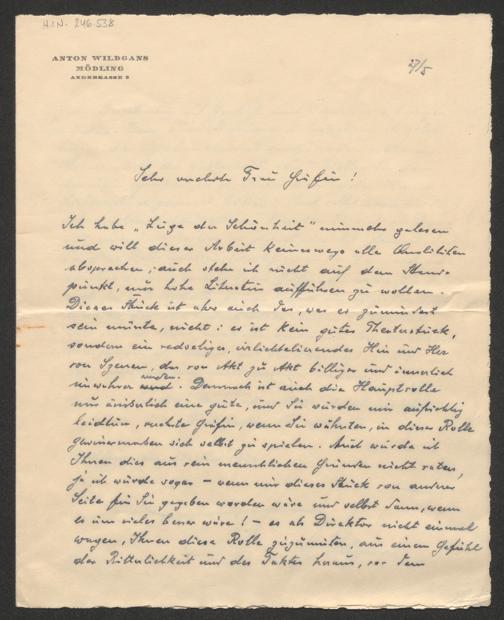 H.I.N. 246.538
ANTON WILDGANS
MÖDLING
ANDERGASSE 5
27/5
Sehr verehrte Frau Gräfin!
Ich habe „Lüge der Schönheit" nunmehr gelesen
und will dieser Arbeit keineswegs alle Qualitäten
absprechen; auch stehe ich nicht auf dem Stand-
punkt, nur hohe Literatur aufführen zu wollen.
Dieses Stück ist aber auch das, was es zumindest
sein müsste, nicht: es ist kein gutes Theaterstück,
sondern ein redseliges, Hin und Her
von Szenen, das von Akt zu Akt billiger und innerlich
unwahrer wird. Demnach ist auch die Hauptrolle
nur äusserlich eine gute, und Sie würden mir aufrichtig
leidtun, verehrte Gräfin, wenn Sie wähnten, in dieser Rolle
gewissermaßen sich selbst zu spielen. Auch würde ich
Ihnen dies aus rein menschlichen Gründen nicht raten,
ja ich würde sogar – wenn mir dieses Stück von anderer
Seite für Sie gegeben worden wäre und selbst dann, wenn
es um vieles besser wäre! – es als Direktor nicht einmal
wagen, Ihnen diese Rolle zuzumuten, aus einem Gefühl
der Ritterlichkeit und des Taktes heraus, vor dem